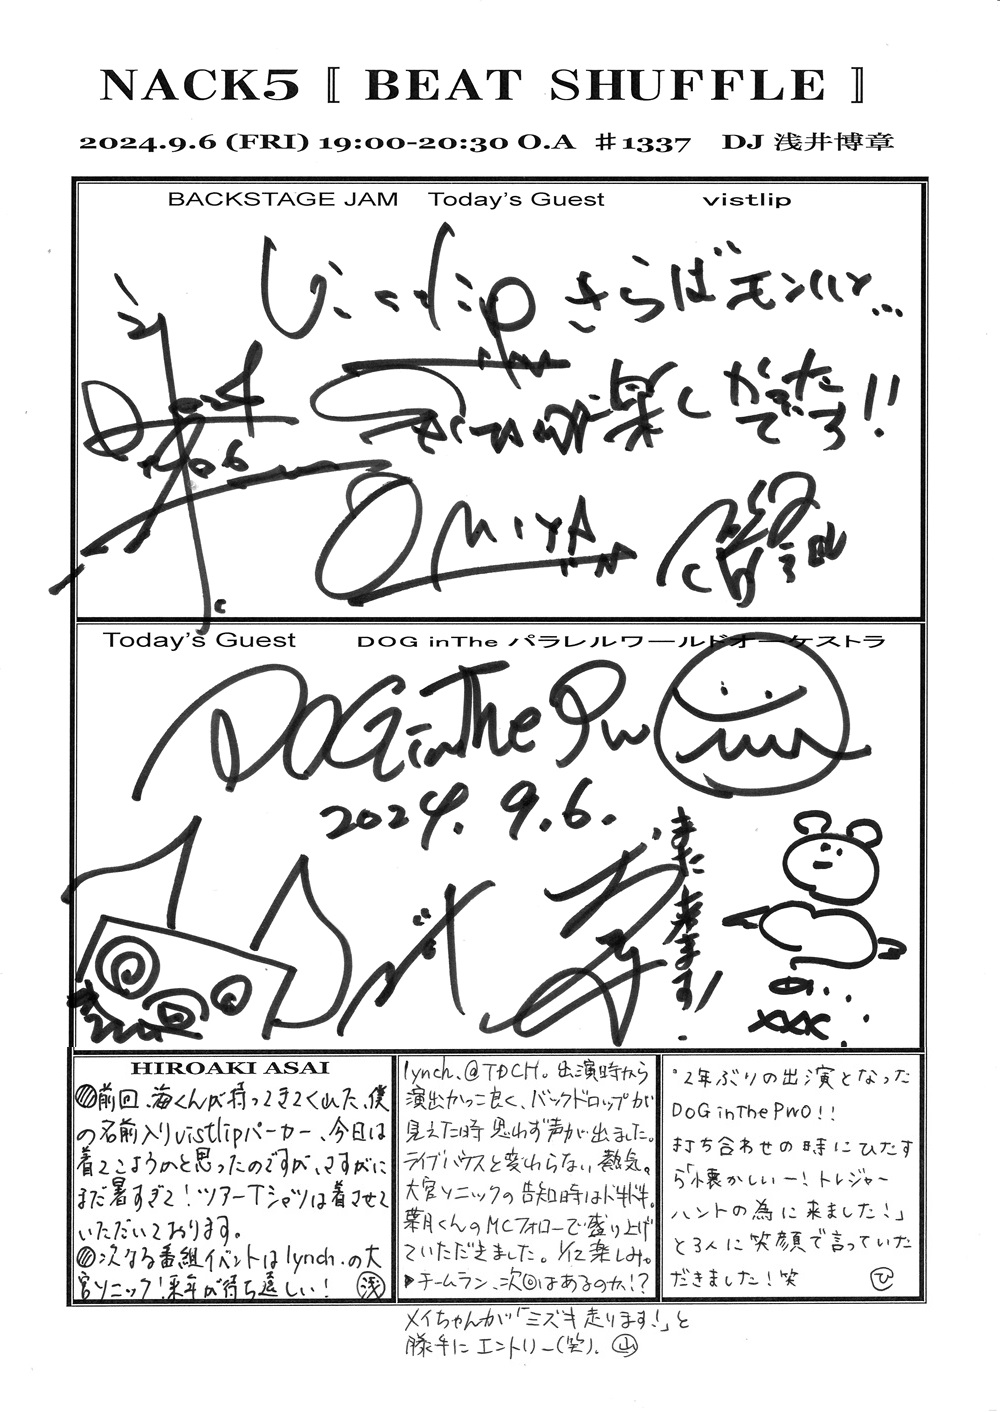 NACK5 〚 BEAT SHUFFLE 〛
2024.9.6 (FRI) 19:00-20:30 O.A ♯1337 DJ 浅井博章
BACKSTAGE JAM Today's Guest vistlip
vistlip さらばモンハと...
楽しかったでやろ!!
OMIYA
Today's Guest DOG inThe パラレルワールドオーケストラ
DOG inThe Pwo
2024. 9. 6.
また来ます!
xxx
HIROAKI ASAI
前回、海くんが持ってきてくれた、僕
の名前入りvistlipパーカー、今日は
着てこようかと思ったのですが、さすがに
まだ暑すぎて!ツアーTシャツは着させて
いただいております。
次なる番組イベントはlynch.の大
宮ソニック!来年が待ち遠しい! 浅
lynch.@TDCH. 出演時から
演出かっこ良く、バックドロップが
見えた時思わず声が出ました。
ライブハウスと変わらない熱気。
大宮ソニックの告知時はドキドキ。
葉月くんのMCフォローで盛り上げ
ていただきました。1/12楽しみ。
▶チームラン、次回はあるのか!?
メイちゃんが「ミズキ走ります!」と
勝手にエントリー(笑). 山
°2年ぶりの出演となった
DOG inThe PWO!!
打ち合わせの時にひたす
ら「懐かしいー!トレジャー
ハントの為に来ました!」
と3人に笑顔で言っていた
だきました!笑 ひ